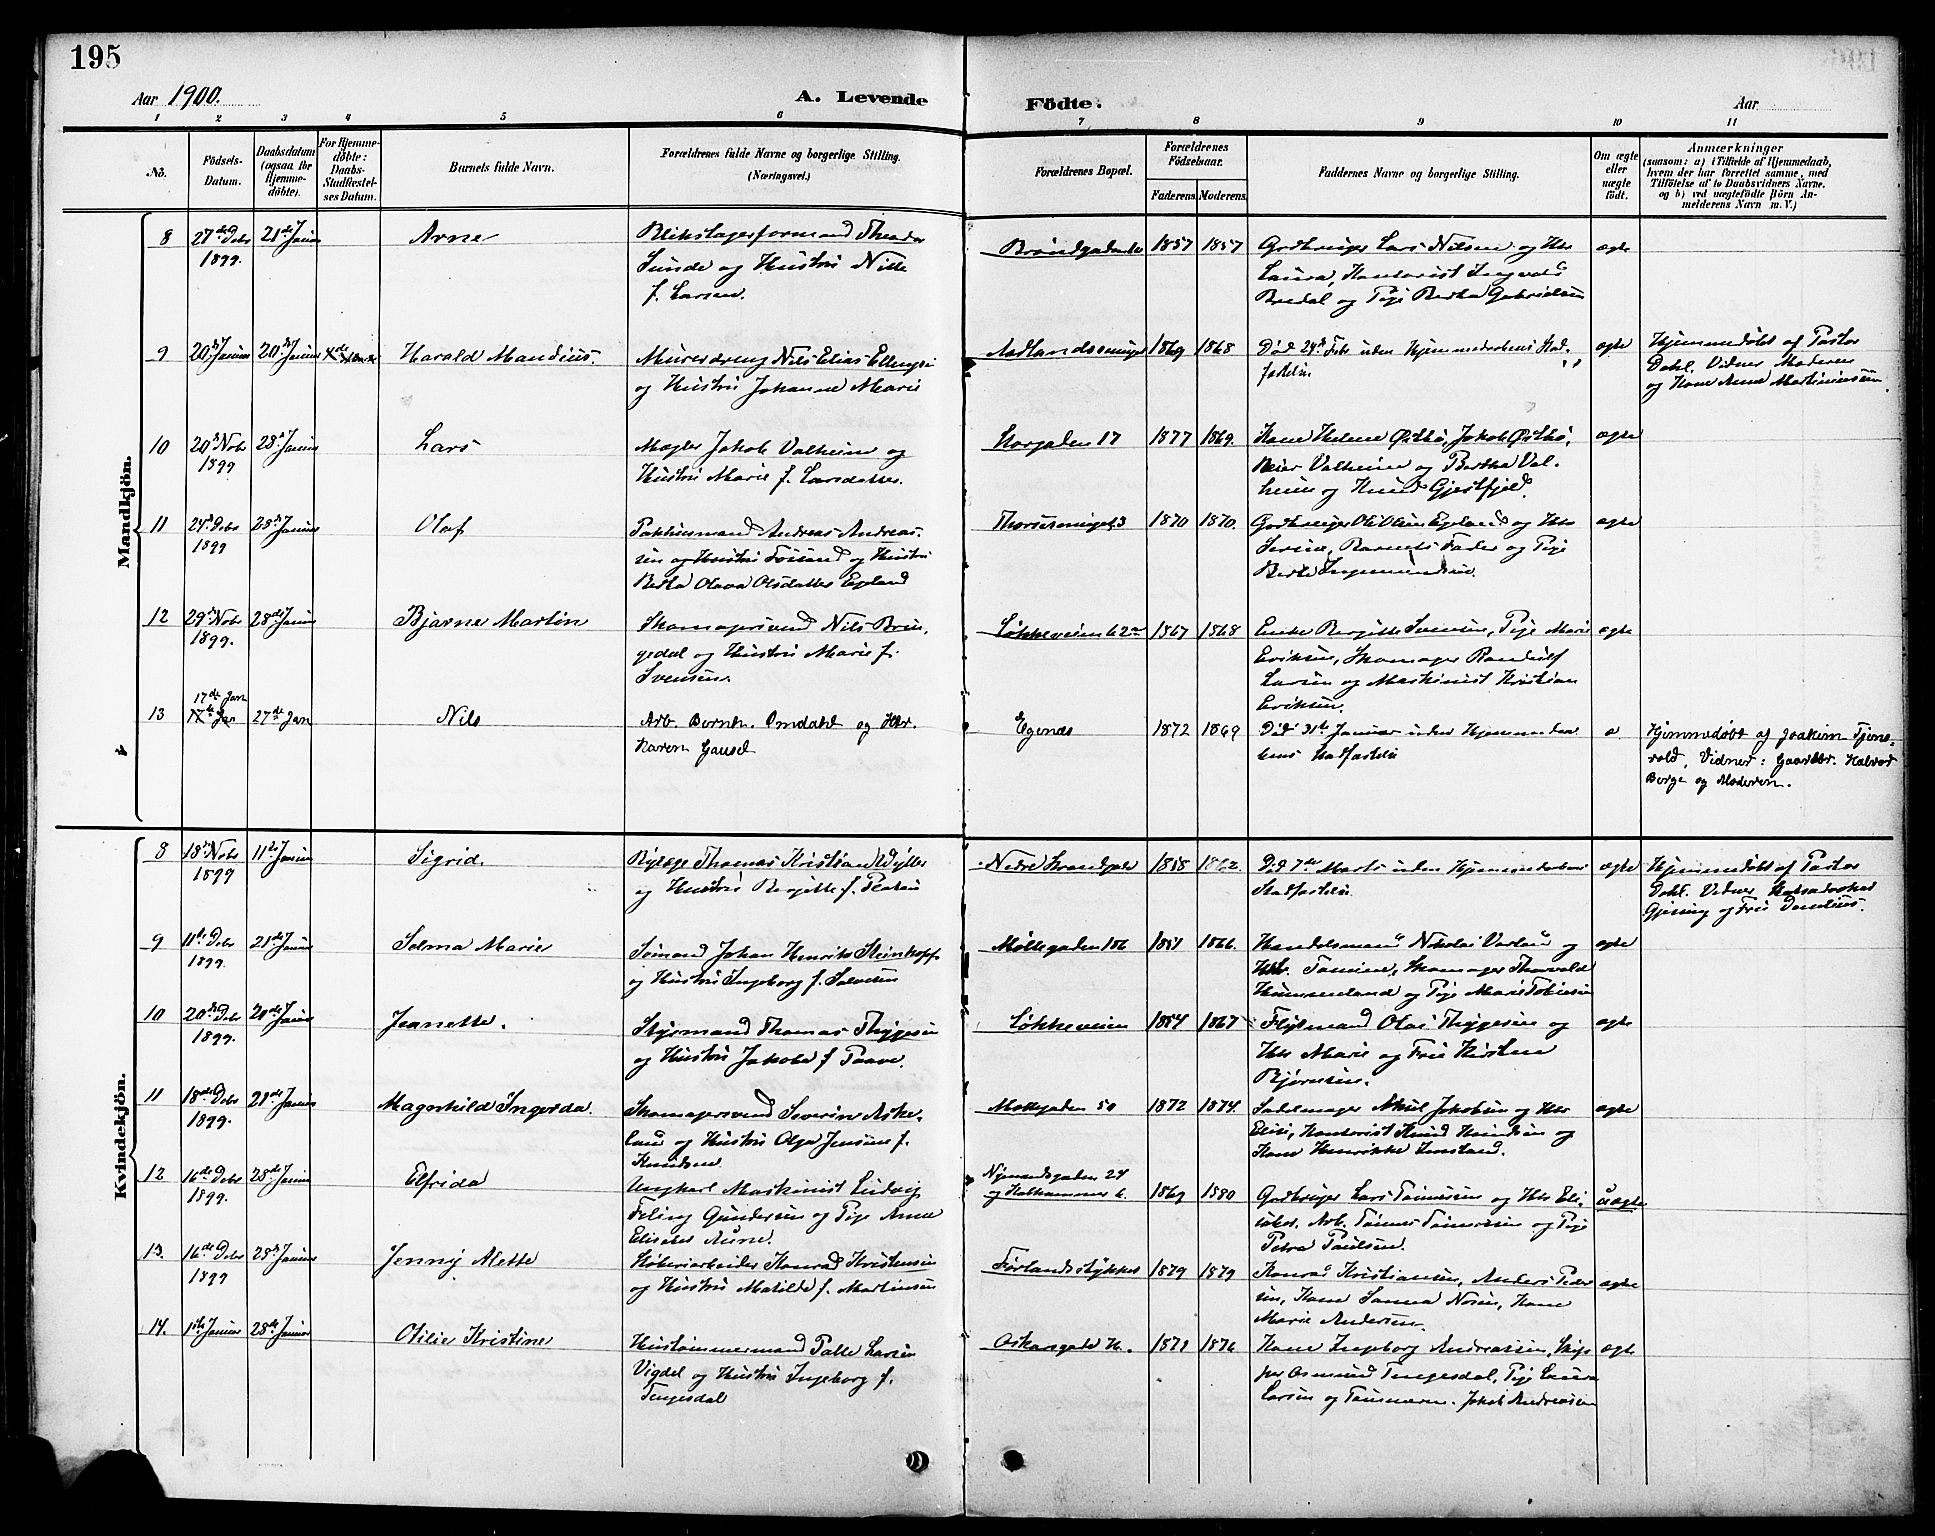 195
Aar 1900.
A. Levende Födte.
Aar
1 2 3 4 5 6 7 8 9 10 11
No.
Födsels-Datum.
Daabsdatum (ogsaa for Hjemme-döbte).
For Hjemme-döbte: Daabs-Stadfæstel-ses Datum.
Barnets fulde Navn.
Forældrenes fulde Navne og borgerlige Stilling.
(Næringsvei.)
Forældrenes Bopæl.
Forældrenes Födselsaar.
Faderens Moderens
Faddernes Navne og borgerlige Stilling.
Om ægte eller uægte födt.
Anmærkninger
(saasom: a) i Tilfælde af Hjemmedaab,
hvem der har forrettet samme, med
Tilföielse af to Daabsvidners Navne,
og b) ved uægtefödte Börn An-
melderens Navn m. V.)
Mandkjön.
8 27de Debr 1899. 21de Januar Arne
Blikslagerformand Theodor
Sunde og Hustru Nille
f. Larsen.
Bröndgaden 1857 1857
Gaardbruger Lars Nilsen og Hst
Laura, Kontorist Ingvald
Bredal og Pige Bertha Gabrielsen
ægte
9 20de Januar 20de Januar Harald Mandius.
Murerdreng Nils Elias Ellingsen
og Hustru Johanne Marie
1869 1868
Död 24de Febr uden Hjemmedaabens Stad-
fæstelse.
ægte
Hjemmedöbt af Pastor
Dahl. Vidner Moderen
og Kone Anne Martiniussen.
10 20de Novbr 1899 28de Januar Lars
Mægler Jakob Valheim og
Hustru Marie f. Larsdatter.
Storgaden 17 1877 1869.
Kone Helene Østbö, Jakob Østbö,
Peier Valheim og Bertha Val-
heim og Knud Gjestfjeld.
ægte
11 24de Debr 1899 28de Januar Olaf
Pakhusmand Andreas Andreas-
sen og Hustru
Berta Olava Olsdatter Egeland
1870 1870.
Gaardbruger Ole Olsen Egeland og Hst
Serine, Barnets Fader og Pige
Berte Ingemundsen.
ægte
12 29de Novbr 1899. 28de Januar Bjarne Martin
Skomagersvend Nils Brin-
gedal og Hustru Marie f.
Svensen.
Lökkeveien 62a 1867 1868
Enke Bergitte Svensen, Pige Marie
Eriksen, Skomager Randulf
Larsen og Maskinist Kristian
Eriksen.
ægte
13 17de Jan 27de Jan Nils
Arb. Berntn. Omdahl og Hst.
Karen Gausel
Egenæs 1872 1869
Död 31te Januar uden Hjemmedaa-
bens Stadfæstelse
Hjemmedöbt af Joakim Tjens-
vold, Vidner: Gaardbr. Halvor
Berge og Moderen.
Kvindekjön.
8 18de Novbr 1899 11te Januar Sigrid.
Thomas Kristian Wyller
og Hustru Bergitte f.
Nedre Strandgade 1858 1862.
Död 7de Marts uden Hjemmedaabens
Stadfæstelse.
ægte
Hjemmedöbt af Pastor
Dahl. Vidner
og Frk
9 11te Debr 1899. 21de Januar Selma Marie
Sömand Johan Henrik Steinkopf
og Hustru Ingeborg f. Salvesen
Möllegaden 106 1851 1866.
Handelsmand Nikolai Varland og
Hst. Tomine, Skomager Thorvald
Hummeland og Pige Marie Tobiesen
ægte
10 20de Debr 1899. 20de Januar Jeanette.
Styrmand Thomas Thygesen
og Hustru Jakobe f. Paave.
Lökkeveien 1854 1867
Flytmand Olai Thygesen og
Hst Marie og Frk Kirstine
Björnsen.
ægte
11 18de Debr 1899. 21de Januar Magnhild Ingerda.
Skomagersvend Severin Aske-
land og Hustru Olga Jensine f.
Knudsen
Möllegaden 50 1872 1874.
Sadelmager Aksel Jakobsen og Hst
Elise, Kontorist Knud Knudsen og
Kone Henrikke Imsland.
ægte
12 16de Debr 1899. 28de Januar Elfrida
Ungkarl Maskinist Ludvig
Feling Gundersen og Pige Anna
Elisabet Aune.
Nymandsgaden 24
og Kalhammer 6. 1869 1880
Gaardbruger Lars Tönnessen og Hst Eli-
sabet. Arb. Tönnes Tönnessen og Pige
Petra Paulsen.
uægte
13. 16de Debr 1899 28de Januar Jenny Alette
Støberiarbeider Konrad Kristensen
og Hustru Matilde f. Martinsen
Forlandsstykket 1879 1879
Konrad Kristiansen, Anders Peder-
sen, Kone Sanna Nosen, Kone
Marie Andersen.
ægte
14. 1ste Januar 28de Januar Otilie Kristine
Hustømmermand Palle Larsen
Vigdel og Hustru Ingeborg f.
Tengesdal
Oskarsgade 1871 1876
Kone Ingeborg Andreassen, Skip-
per Osmund Tengesdal, Pige Laura
Larsen og Tömmerm. Jakob Andreasen
ægte